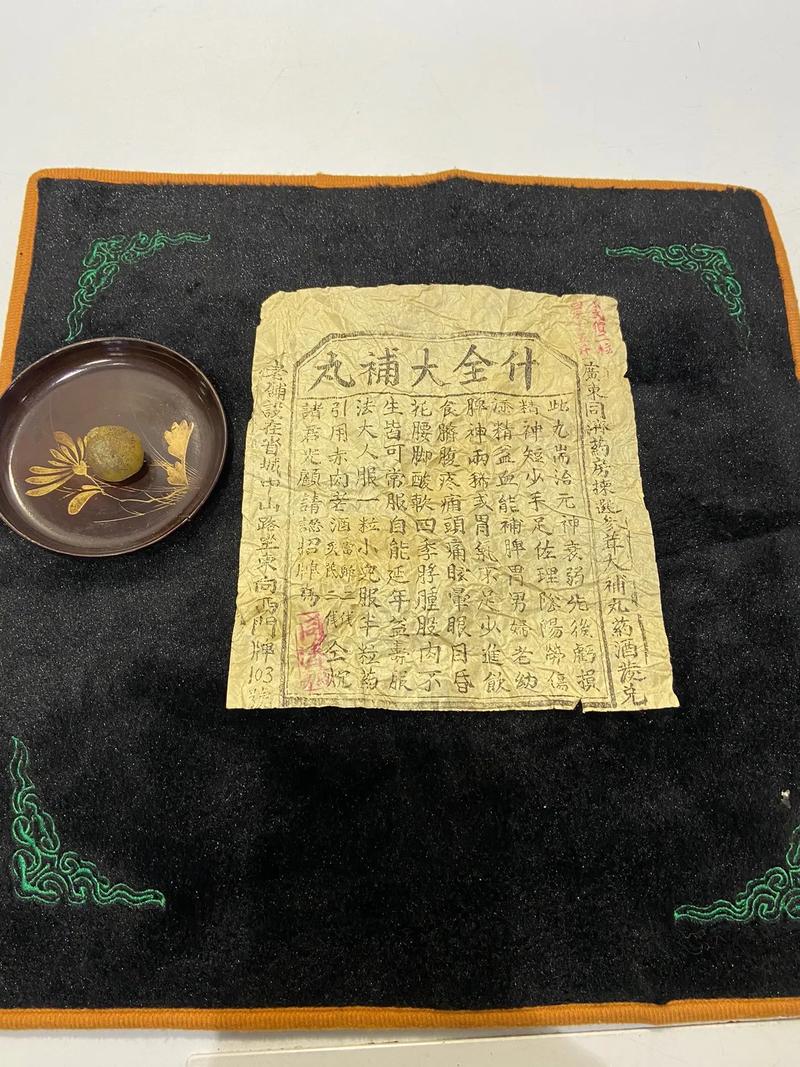 什全大補丸
廣東同濟藥房揀選參茸大補丸藥酒發兌
此丸耑治元神衰弱先後虧損
精神短少手足佐理陰陽勞傷
添精益血能補脾胃男婦老幼
脾神兩 或胃氣不足少進飲
食臍腹疼痛頭痛眩暈眼目昏
花腰脚酸軟四季脬腫股肉不
生皆可常服自能延年益壽服
法大人服一粒小兒服半粒
引用赤肉 酒
諸君光顧請認招牌
舖設在省城中山路坐東向西門牌103
同濟